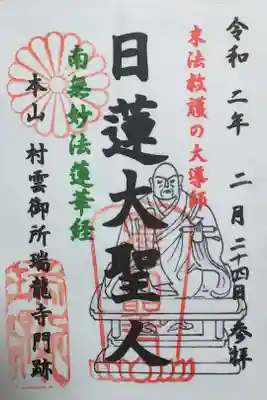 令和二年二月二十四日参拝
末法救護の大導師
日蓮大聖人
南無妙法蓮華経
本山 村雲御所瑞龍寺門跡